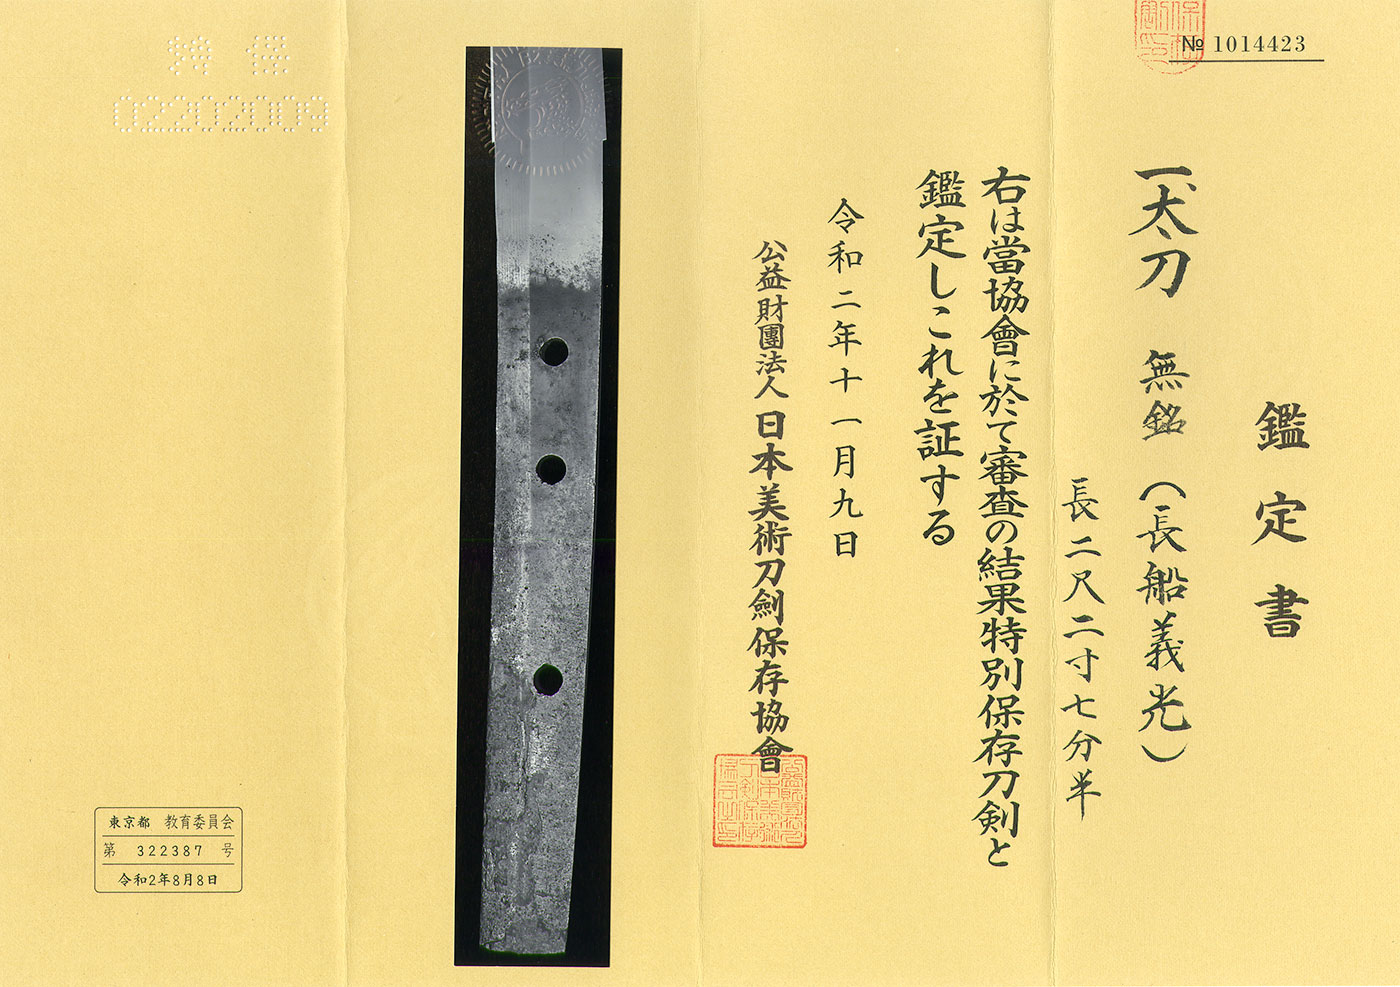 № 1014423
鑑定書
一、太刀 無銘(長船義光)
長二尺二寸七分半
右は當協會に於て審査の結果特別保存刀剣と
鑑定しこれを証する
令和二年十一月九日
公益財團法人 日本美術刀劍保存協會
02202009
東京都 教育委員会
第 322387 号
令和2年8月8日